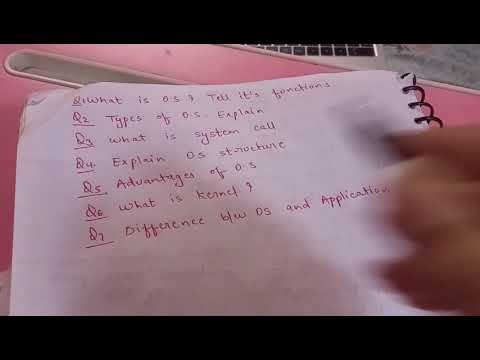 Q1 What is O.S ? Tell it's functions
Q2 Types of O.S. Explain
Q3 What is system call
Q4. Explain OS structure
Q5 Advantages of O.S
Q6 What is Kernel ?
Q7 Difference b/w OS and Application